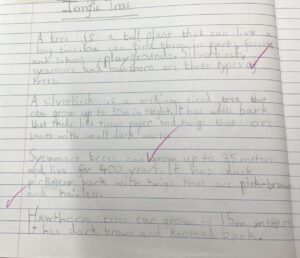 Terrific Trees
A tree is a tall plant that can live a
long time. You can find them in parks
and school playgrounds. Silver birch,
sycamore and hawthorn are three types of
trees.
A silver birch is a medium sized tree that
can grow up to 30m in height. It has white bark
that sheds like tissue paper and twigs that are
smooth with small dark warts.
Sycamore trees can grow up to 35 meters
and live for 400 years. It has dark
pink-grey bark with twigs that are pink-brown
and hairless.
Hawthorn trees can grow to 15m meters
It has dark brown and knotted bark.